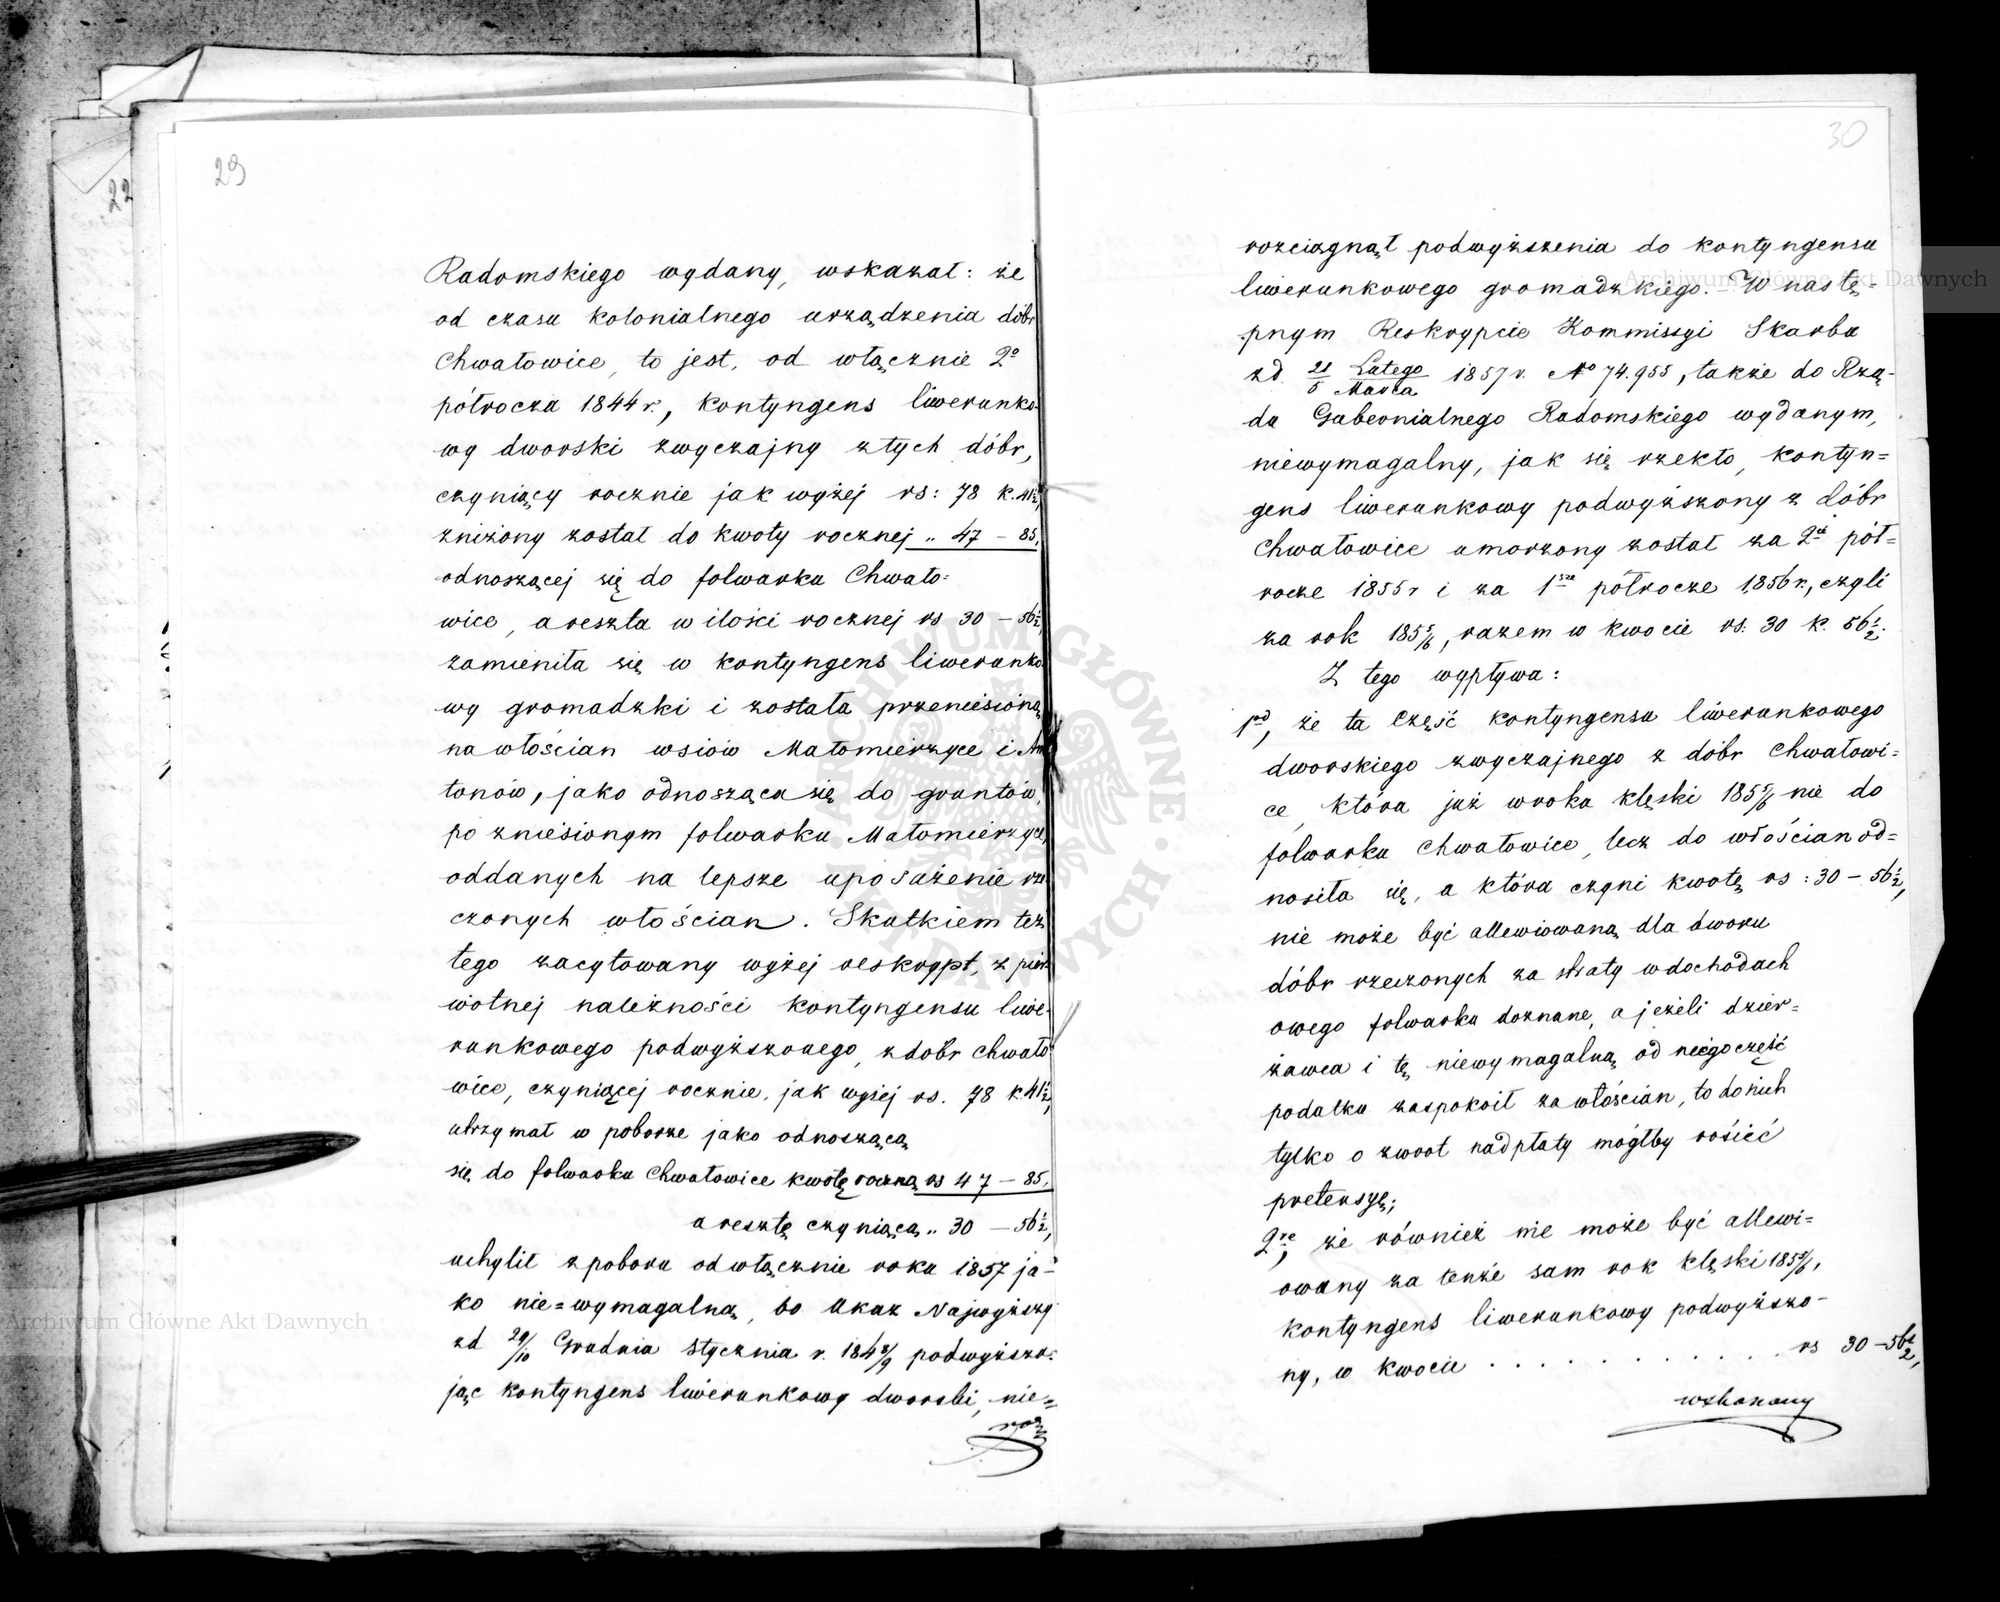 29
Radomskiego wydany, wskazał: że
od czasu kolonialnego urządzenia dóbr
Chwałowice, to jest, od włącznie 2º
półrocza 1844 r., kontyngens liwerunko-
wy dworski zwyczajny z tych dóbr,
czyniący rocznie jak wyżej rs: 78 k. 41½,
zniżony został do kwoty rocznej „ 47 – 85,
odnoszącej się do folwarku Chwało=
wice, a reszta w ilości rocznej rs 30 – 56½,
zamieniła się w kontyngens liwerunko-
wy gromadzki i została przeniesioną
na włościan wsiów Małomierzyce i An
tonów, jako odnosząca się do gruntów,
po zniesionym folwarku Małomierzyce,
oddanych na lepsze uposażenie rze
czonych włościan. Skutkiem też
tego zacytowany wyżej reskrypt, z pier
wotnej należności kontyngensu liwe-
runkowego podwyższonego, z dóbr Chwało
wice, czyniącej rocznie, jak wyżej rs. 78 k. 41½,
utrzymał w poborze jako odnoszącą
się do folwarku Chwałowice kwotę roczną rs 47 – 85,
a resztę czyniącą „ 30 – 56½,
uchylił z poboru od włącznie roku 1857 ja-
ko nie=wymagalną, bo Ukaz Najwyższy
zd 29/10 Grudnia Stycznia r. 1848/9 podwyższa=
jąc kontyngens liwerunkowy dworski, nie=
roz
30
rozciągnął podwyższenia do kontyngensu
liwerunkowego gromadzkiego. – W nastę-
pnym Reskrypcie Kommissyi Skarbu
zd. 21/5 Lutego/Marca 1857 r. Nº 74.955, także do Rzą-
du Gubernialnego Radomskiego wydanym,
niewymagalny, jak się rzekło, kontyn=
gens liwerunkowy podwyższony z dóbr
Chwałowice umorzony został za 2gie pół=
rocze 1855 r i za 1sze półrocze 1856 r., czyli
za rok 1855/6, razem w kwocie rs. 30 k. 56½.
Z tego wypływa:
1od, że ta część kontyngensu liwerunkowego
dworskiego zwyczajnego z dóbr Chwałowi=
ce, która już w roku klęski 1855/6 nie do
folwarku Chwałowice, lecz do włościan od=
nosiła się, a która czyni kwotę rs: 30 – 56½,
nie może być allewiowaną dla dworu
dóbr rzeczonych za straty w dochodach
owego folwarku doznane, a jeżeli dzier=
żawca i tę niewymagalną od niego część
podatku zaspokoił za włościan, to do nich
tylko o zwrot nadpłaty mógłby rościć
pretensyę;
2re, że również nie może być allewi=
owany za tenże sam rok klęski 1855/6,
kontyngens liwerunkowy podwyższo-
ny, w kwocie . . . . . . . . . . . . rs 30 – 56½,
wskazany
Archiwum Główne Akt Dawnych
Archiwum Główne Akt Dawnych
ARCHIWUM GŁÓWNE AKT DAWNYCH
22